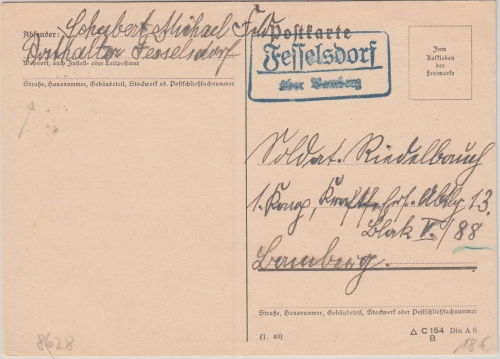 Absender: Schubert Michael Feld
Posthalter Fesselsdorf
Wohnort, auch Zustell- oder Leitpostamt
Straße, Hausnummer, Gebäudeteil, Stockwerk od. Postschließfachnummer
8628
Postkarte
Fesselsdorf
über Bamberg
Zum
Aufkleben
der
Freimarke
Soldat. Riedelbauch
1. Komp, Kraftf. Abtlg 13.
Blok V. / 88
Bamberg.
Straße, Hausnummer, Gebäudeteil, Stockwerk oder Postschließfachnummer
(1. 40)
△ C 154 Din A 6
B
18 €